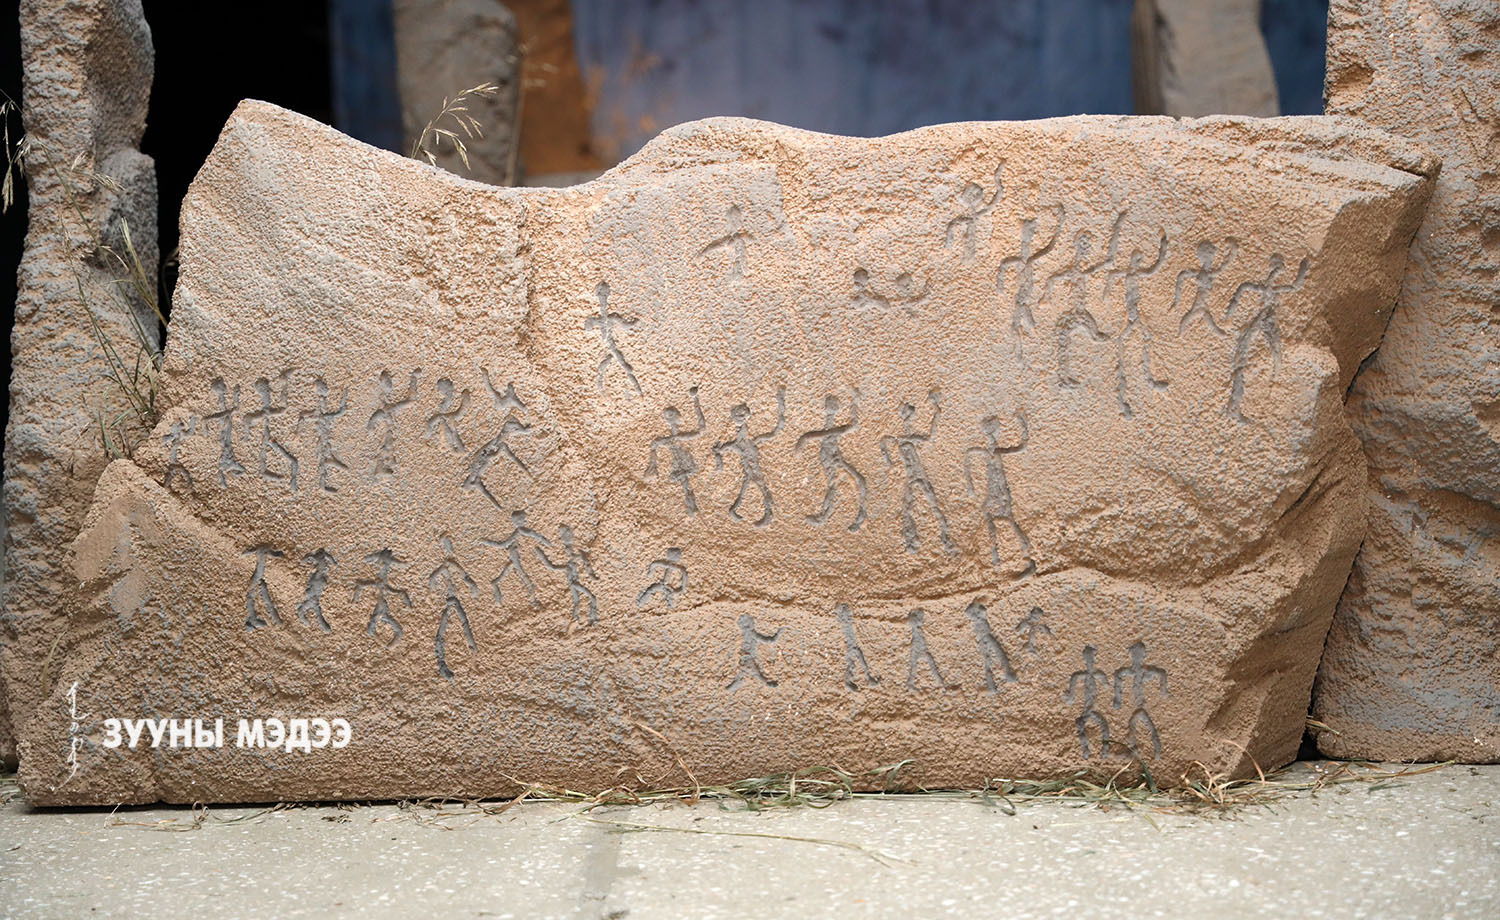 ЗУУНЫ МЭДЭЭ